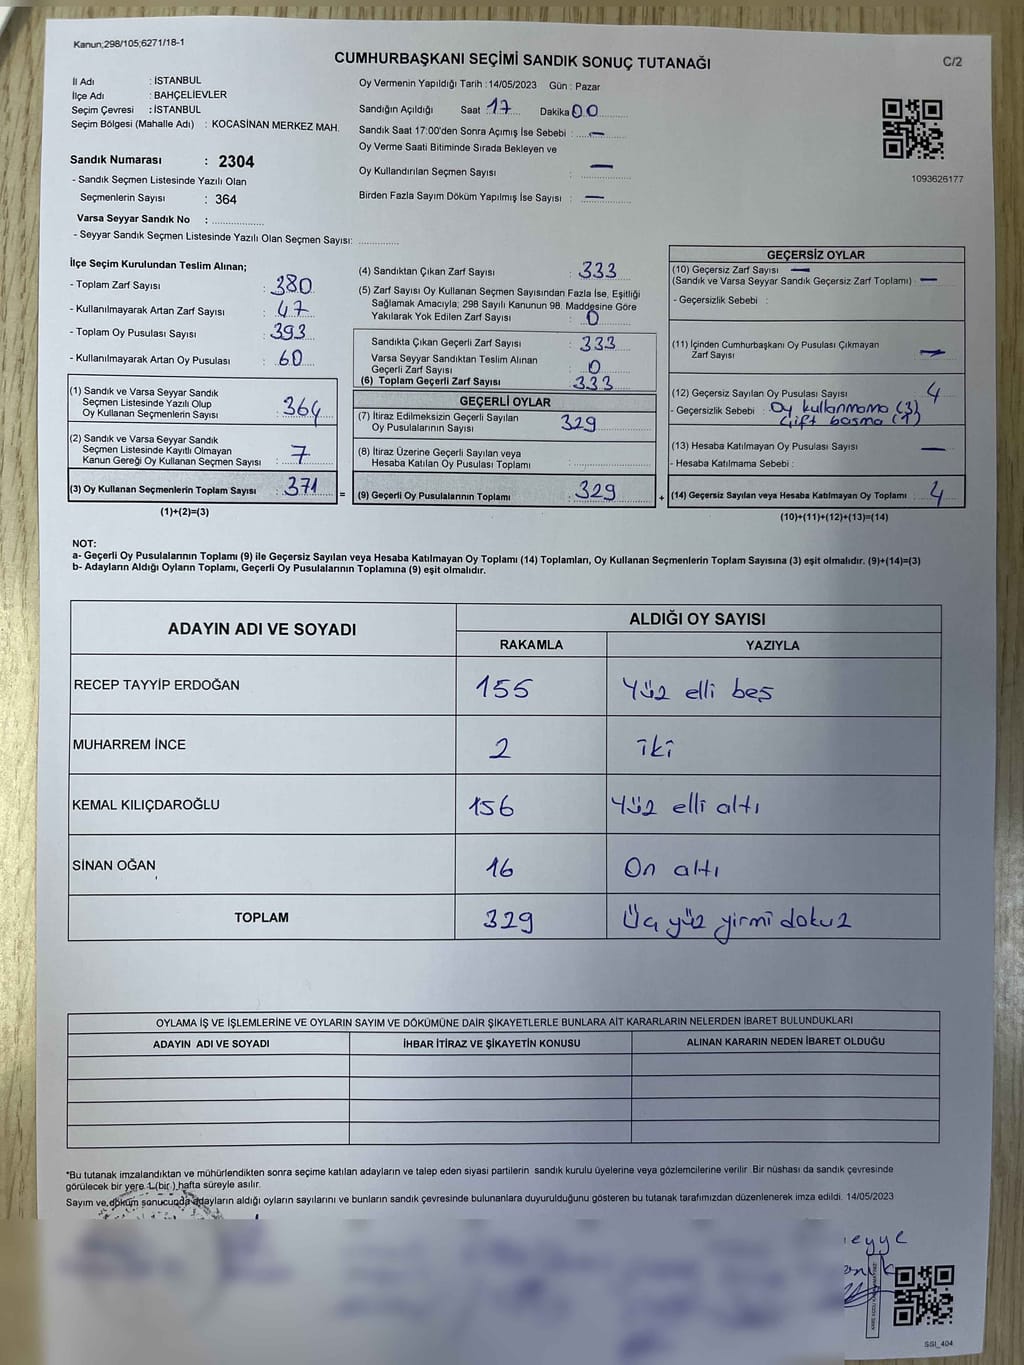 Kanun;298/105;6271/18-1
CUMHURBAŞKANI SEÇİMİ SANDIK SONUÇ TUTANAĞI
C/2
İl Adı : İSTANBUL
İlçe Adı : BAHÇELİEVLER
Seçim Çevresi : İSTANBUL
Seçim Bölgesi (Mahalle Adı) : KOCASİNAN MERKEZ MAH.
Sandık Numarası : 2304
- Sandık Seçmen Listesinde Yazılı Olan
Seçmenlerin Sayısı : 364
Varsa Seyyar Sandık No :
- Seyyar Sandık Seçmen Listesinde Yazılı Olan Seçmen Sayısı:
Oy Vermenin Yapıldığı Tarih :14/05/2023 Gün : Pazar
Sandığın Açıldığı Saat 17 Dakika 00
Sandık Saat 17:00'den Sonra Açımış İse Sebebi : —
Oy Verme Saati Bitiminde Sırada Bekleyen ve
Oy Kullandırılan Seçmen Sayısı : —
Birden Fazla Sayım Döküm Yapılmış İse Sayısı : —
1093626177
İlçe Seçim Kurulundan Teslim Alınan;
- Toplam Zarf Sayısı : 380
- Kullanılmayarak Artan Zarf Sayısı : 47
- Toplam Oy Pusulası Sayısı : 393
- Kullanılmayarak Artan Oy Pusulası : 60
(1) Sandık ve Varsa Seyyar Sandık
Seçmen Listesinde Yazılı Olup
Oy Kullanan Seçmenlerin Sayısı : 364
(2) Sandık ve Varsa Seyyar Sandık
Seçmen Listesinde Kayıtlı Olmayan
Kanun Gereği Oy Kullanan Seçmen Sayısı : 7
(3) Oy Kullanan Seçmenlerin Toplam Sayısı : 371
(1)+(2)=(3)
=
(4) Sandıktan Çıkan Zarf Sayısı : 333
(5) Zarf Sayısı Oy Kullanan Seçmen Sayısından Fazla İse, Eşitliği
Sağlamak Amacıyla; 298 Sayılı Kanunun 98. Maddesine Göre
Yakılarak Yok Edilen Zarf Sayısı : 0
Sandıkta Çıkan Geçerli Zarf Sayısı : 333
Varsa Seyyar Sandıktan Teslim Alınan
Geçerli Zarf Sayısı : 0
(6) Toplam Geçerli Zarf Sayısı : 333
GEÇERLİ OYLAR
(7) İtiraz Edilmeksizin Geçerli Sayılan
Oy Pusulalarının Sayısı : 329
(8) İtiraz Üzerine Geçerli Sayılan veya
Hesaba Katılan Oy Pusulası Toplamı :
(9) Geçerli Oy Pusulalarının Toplamı : 329
+
GEÇERSİZ OYLAR
(10) Geçersiz Zarf Sayısı —
(Sandık ve Varsa Seyyar Sandık Geçersiz Zarf Toplamı) : —
- Geçersizlik Sebebi :
(11) İçinden Cumhurbaşkanı Oy Pusulası Çıkmayan
Zarf Sayısı : —
(12) Geçersiz Sayılan Oy Pusulası Sayısı : 4
- Geçersizlik Sebebi : Oy kullanmama (3)
Çift basma (1)
(13) Hesaba Katılmayan Oy Pusulası Sayısı : —
- Hesaba Katılmama Sebebi :
(14) Geçersiz Sayılan veya Hesaba Katılmayan Oy Toplamı : 4
(10)+(11)+(12)+(13)=(14)
NOT:
a- Geçerli Oy Pusulalarının Toplamı (9) ile Geçersiz Sayılan veya Hesaba Katılmayan Oy Toplamı (14) Toplamları, Oy Kullanan Seçmenlerin Toplam Sayısına (3) eşit olmalıdır. (9)+(14)=(3)
b- Adayların Aldığı Oyların Toplamı, Geçerli Oy Pusulalarının Toplamına (9) eşit olmalıdır.
ADAYIN ADI VE SOYADI
ALDIĞI OY SAYISI
RAKAMLA YAZIYLA
RECEP TAYYİP ERDOĞAN 155 Yüz elli beş
MUHARREM İNCE 2 iki
KEMAL KILIÇDAROĞLU 156 Yüz elli altı
SİNAN OĞAN 16 On altı
TOPLAM 329 Üç yüz yirmi dokuz
OYLAMA İŞ VE İŞLEMLERİNE VE OYLARIN SAYIM VE DÖKÜMÜNE DAİR ŞİKAYETLERLE BUNLARA AİT KARARLARIN NELERDEN İBARET BULUNDUKLARI
ADAYIN ADI VE SOYADI İHBAR İTİRAZ VE ŞİKAYETİN KONUSU ALINAN KARARIN NEDEN İBARET OLDUĞU
*Bu tutanak imzalandıktan ve mühürlendikten sonra seçime katılan adayların ve talep eden siyasi partilerin sandık kurulu üyelerine veya gözlemcilerine verilir .Bir nüshası da sandık çevresinde
görülecek bir yere 1.(bir ) hafta süreyle asılır.
Sayım ve döküm sonucunda adayların aldığı oyların sayılarını ve bunların sandık çevresinde bulunanlara duyurulduğunu gösteren bu tutanak tarafımızdan düzenlenerek imza edildi. 14/05/2023
SGI_404